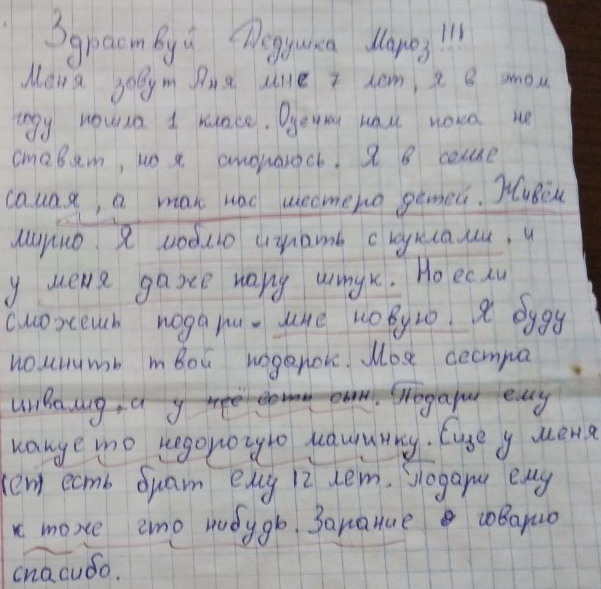 Здраствуй Дедушка Мароз!!!
Меня зовут Аня мне 7 лет, я в этом
году пошла 1 класс. Оценки нам пока не
ставят, но я стораюсь. Я в семье
самая, а так нас шестеро детей. Живём
мирно. Я люблю играть с куклами, и
у меня даже пару штук. Но если
сможешь подари мне новую. Я буду
помнить твой подарок. Моя сестра
инвалид, и у неё есть сын. Подари ему
какуето недорогую машинку. Еще у меня
есть брат ему 12 лет. Подари ему
тоже что нибудь. Зарание говарю
спасибо.